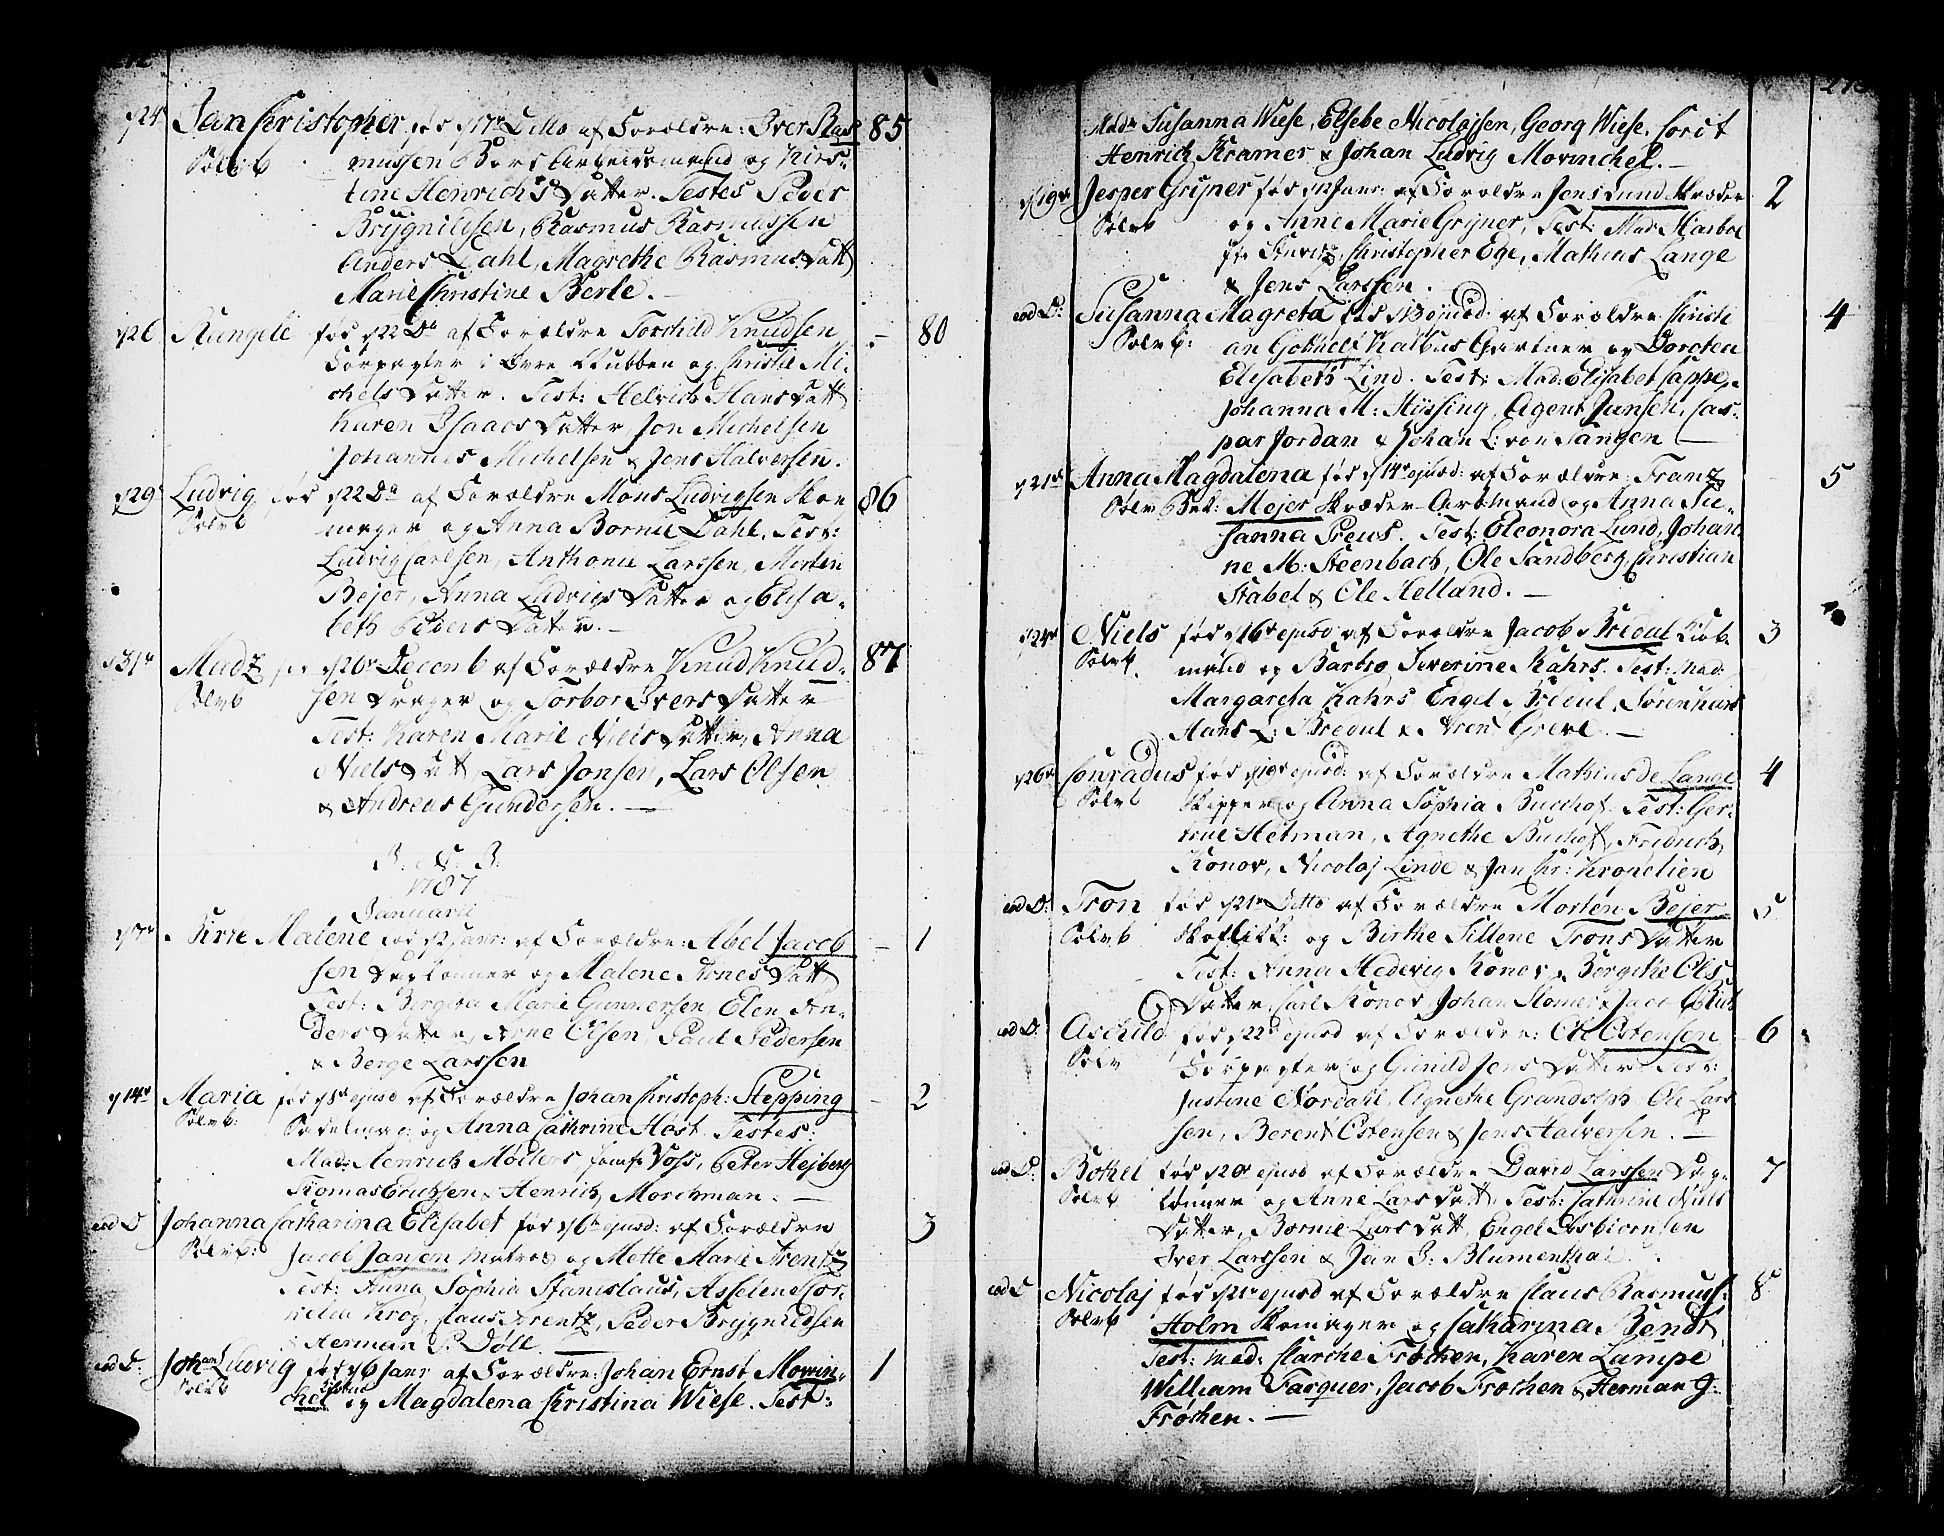 d 24 Jan Christopher, fød d 17de Ditto af Forældre: Iver Ras 85
mussen Bors Arbeidsmand og Kirs-
tine Henrichs Datter. Testes Peder
Brÿgnildsen, Rasmus Rasmussen
Anders Dahl, Magrethe Rasmus Datt
Marie Christine Berle.
d 26 Rungele fød d 22 Do af Forældre Torchild Knudsen - 80
Forpagter i Øvre Stubben og Christie Mi-
chels Datter. Test: Helvich Hans Datt
Karen Isaacs Datter Jon Michelsen
Johannes Michelsen & Jens Halversen.
d 29 Ludvig fød d 22 Do af Forældre Mons Ludvigsen Skoe 86
mager og Anna Borne Dahl. Test:
Ludvig Carlsen, Anthonie Larssen, Morten
Bejer, Anna Ludvigs Datter og Elisa-
beth Peders Datter.
d 31te Madz d 20de Decemb af Forældre Knud Knud- 87
sen Drager og Torbor Ivers Datter
Test: Karen Marie Niels Datter, Anna
Niels Datt, Lars Jonsen, Lars Olsen
& Andreas Gundersen.
1787
Januarii
d 7de Birte Malene fød d 2 Janr: af Forældre: Abel Jacob - 1
sen Daglønner og Malene Arnes Datt
Test: Birgitta Marie Gunnersen, Elen An-
ders Datter, Arne Olsen, Paul Pedersen
& Berge Larssen
d 14de Maria fød d 8de ejusd af Forældre Johan Christoph: Stepping - 2
Sadelmag: og Anna Cathrine Høst. Testes:
Mad: Henrich Møllers Jomf: Voss, Peter Hejberg
Thomas Erichsen & Henrich Morchman.
eod D Johanna Catharina Elisabet fød d 6te ejusd: af Forældre 3
Jacob Jansen Matros og Mette Marie Arentz
Test: Anna Sophia Stanislaus, Asselene Cor-
nelia Krog, Claus Arentz, Peder Brÿgnildsen
& Herman P. Döll.
eod D: Johan Ludvig fød d 6 Janr af Forældre: Johan Ernst Morrin- 1
chel og Magdalena Christina Wiese. Test:
Madm Susanna Wiese, Elsebe Nicolajsen, Georg Wiese, Cordt
Henrich Kramer & Johan Ludvig Morinchel.
d 19de Jesper Grÿner fød d 12 Janr: af Forældre Jens Lund Skræder 2
og Anne Marie Grÿner, Test: Mad Harboe
Christopher Ege, Mathias Lange
& Jens Larssen.
eod D: Susanna Magreta fød d ejusd: af Forældre Christi 4
an Gottlieb Kalbus Gartner og Dorthea
Elisabeth Lind. Test: Mad: Elisabet Cappe,
Johanna M: Mÿssing, Agent Jansen, Cas-
par Jordan & Johan L: von Tangen
d 21de Anna Magdalena fød d 14de ejusd: af Forældre: Frantz 5
Mejer Skræder Arbmand og Anna Su-
sanna Preus. Test: Eleonora Lund, Johan-
ne M: Steenbach, Ole Sandberg, Christian
Stabel & Ole Helland.
d 24de Niels fød d 16de ejusd af Forældre Jacob Bredal Kiøb- 3
mand og Barbro Severine Kahrs. Test: Mad:
Margareta Kahrs Engel Bredal, Søren Kars
Hans L: Bredal & Arent Greve.
d 26de Conradus fød d 19de ejusd: af Forældre Mathias de Lange 4
Skipper og Anna Sophia Buchhof. Test: Ger-
true Hetman, Agnethe Buchof, Fridrich
Konov, Nicolaj Linde & Jan Chr: Kronelien
eod D: Tron fød d 21de Ditto af Forældre Morten Bejer 5
Skoflik: og Birthe Sillene Trons Datter
Test: Anna Hedevig Konov, Borgithe Ols
Datter, Carl Konov, Johan Stomer & Jacob Buch
eod D: Aschild fød d 22de ejusd af Forældre: Ole Ostensen 6
Forpagter og Gunild Jens Datter Test:
Justine Nordahl, Agnethe Grandolph Ole Lars
sen, Berent Ostensen & Jens Halversen.
eod D: Bothel fød d 20de ejusd af Forældre David Larssen Dag- 7
lønner og Anne Lars Datt. Test: Cathrine Niels
Datter, Borne Lars Datt, Engel Asbiørnsen
Iver Larssen & Jan J: Blumenthal.
eod D Nicolaj fød d 21de ejusd af Forældre Claus Rasmuss: 8
Holm Skomager og Catharina Bendt
Test: Mad: Marche Frochen, Karen Lampe
William Farquer, Jacob Frochen & Herman G:
Frøchen.